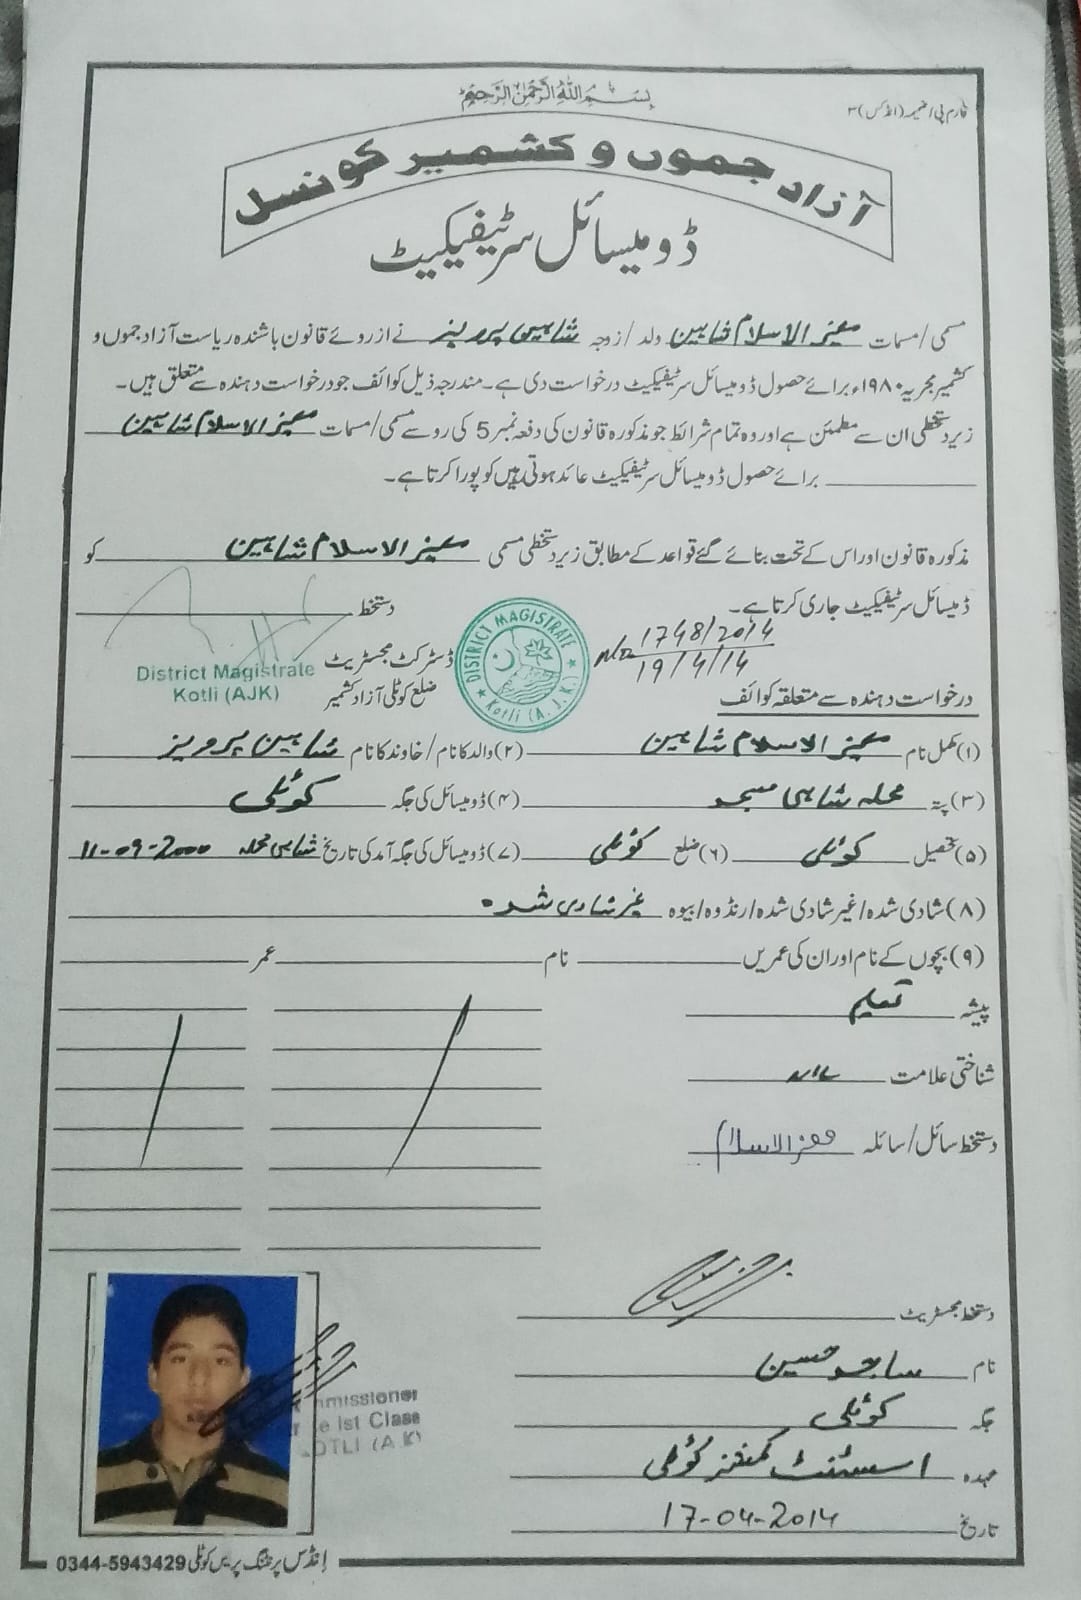 بسم اللہ الرحمٰن الرحیم
فارم پی ضمیمہ (انڈکس) ۳
آزاد جموں و کشمیر کونسل
ڈومیسائل سرٹیفکیٹ
مسمی/مسمات معیز الاسلام شاہین ولد/زوجہ شاہین پرویز نے از روئے قانون باشندہ ریاست آزاد جموں و
کشمیر مجریہ ۱۹۸۰ء برائے حصول ڈومیسائل سرٹیفکیٹ درخواست دی ہے۔ مندرجہ ذیل کوائف جو درخواست دہندہ سے متعلق ہیں۔
زیر دستخطی ان سے مطمئن ہے اور وہ تمام شرائط جو مذکورہ قانون کی دفعہ نمبر 5 کی رو سے مسمی/مسمات معیز الاسلام شاہین
برائے حصول ڈومیسائل سرٹیفکیٹ عائد ہوتی ہیں کو پورا کرتا ہے۔
مذکورہ قانون اور اس کے تحت بنائے گئے قواعد کے مطابق زیر دستخطی مسمی معیز الاسلام شاہین کو
ڈمیسائل سرٹیفکیٹ جاری کرتا ہے۔
دستخط
No 1748/2014
19/4/14
DISTRICT MAGISTRATE
Kotli (A.J.K.)
ڈسٹرکٹ مجسٹریٹ
ضلع کوٹلی آزاد کشمیر
District Magistrate
Kotli (AJK)
درخواست دہندہ سے متعلقہ کوائف
(۱) مکمل نام معیز الاسلام شاہین (۲) والد کا نام/خاوند کا نام شاہین پرویز
(۳) پتہ محلہ شاہی مسجد (۴) ڈومیسائل کی جگہ کوٹلی
(۵) تحصیل کوٹلی (۶) ضلع کوٹلی (۷) ڈومیسائل کی جگہ آمد کی تاریخ شاہی محلہ 11-09-2000
(۸) شادی شدہ/غیر شادی شدہ/رنڈوہ/بیوہ غیر شادی شدہ
(۹) بچوں کے نام اور ان کی عمریں نام عمر
پیشہ تعلیم
شناختی علامت
دستخط سائل/سائلہ معیز الاسلام
دستخط مجسٹریٹ
نام ساجد حسین
جگہ کوٹلی
عہدہ اسسٹنٹ کمشنر کوٹلی
تاریخ 17-04-2014
mmissioner
Ist Class
OTLI (A.K)
انڈس پرنٹنگ پریس کوٹلی 0344-5943429